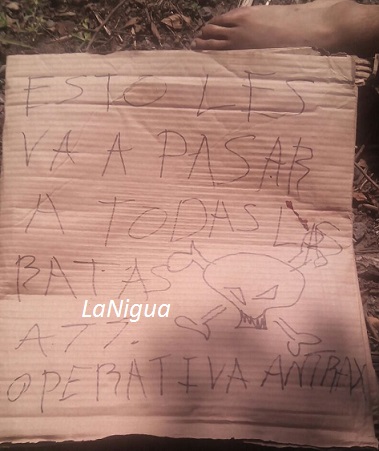 ESTO LES
VA A PASAR
A TODAS LAS
RATAS
LaNigua
ATT.
OPERATIVA ANTRAX